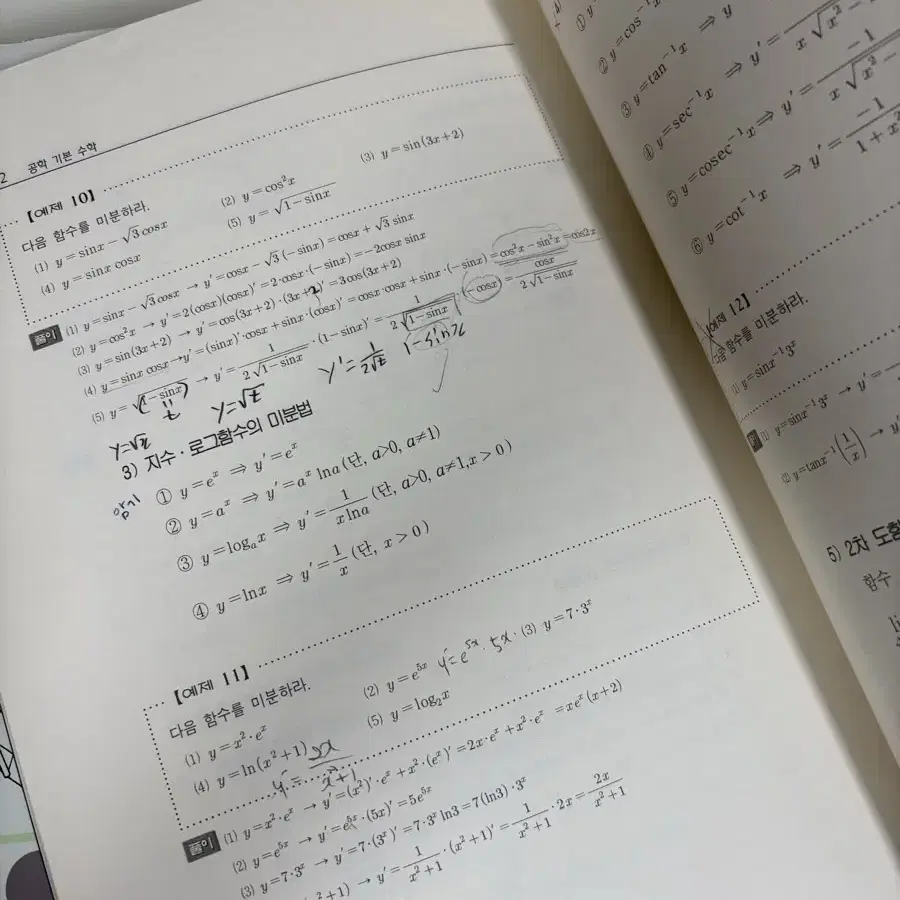 2 공학 기본 수학
【예제 10】
다음 함수를 미분하라.
(1) y=sinx−√3cosx (2) y=cos²x (3) y=sin(3x+2)
(4) y=sinx cosx (5) y=√(1−sinx)
풀이 (1) y=sinx−√3cosx → y′=cosx−√3(−sinx)=cosx+√3 sinx
(2) y=cos²x → y′=2(cosx)(cosx)′=2·cosx·(−sinx)=−2cosx sinx
(3) y=sin(3x+2) → y′=cos(3x+2)·(3x+2)′=3cos(3x+2)
(4) y=sinx cosx→y′=(sinx)′·cosx+sinx·(cosx)′=cosx·cosx+sinx·(−sinx)=cos²x−sin²x=cos2x
(5) y=√(1−sinx) → y′=1/(2√(1−sinx))·(1−sinx)′=1/(2√(1−sinx))·(−cosx)=−cosx/(2√(1−sinx))
t
y=√t y′=1/(2√t) 1−sinx
3) 지수·로그함수의 미분법
암기
① y=eˣ ⇒ y′=eˣ
② y=aˣ ⇒ y′=aˣ lna (단, a>0, a≠1)
③ y=logₐx ⇒ y′=1/(xlna) (단, a>0, a≠1, x>0)
④ y=lnx ⇒ y′=1/x (단, x>0)
【예제 11】
다음 함수를 미분하라.
(1) y=x²·eˣ (2) y=e⁵ˣ y′=e⁵ˣ·5x· (3) y=7·3ˣ
(4) y=ln(x²+1) y′=2x/(x²+1) (5) y=log₂x
풀이 (1) y=x²·eˣ → y′=(x²)′·eˣ+x²·(eˣ)′=2x·eˣ+x²·eˣ=xeˣ(x+2)
(2) y=e⁵ˣ → y′=e⁵ˣ·(5x)′=5e⁵ˣ
(3) y=7·3ˣ → y′=7·(3ˣ)′=7·3ˣ ln3=7(ln3)·3ˣ
²+1) → y′=1/(x²+1)·(x²+1)′=1/(x²+1)·2x=2x/(x²+1)
① y
② y=cos⁻¹x
③ y=tan⁻¹x ⇒ y
④ y=sec⁻¹x ⇒ y′=
x√(x²−
⑤ y=cosec⁻¹x ⇒ y′=−1/(x√(x²−
⑥ y=cot⁻¹x ⇒ y′=−1/(1+x
예제 12】
다음 함수를 미분하라.
(1) y=sinx⁻¹3ˣ
(1) y=sinx⁻¹3ˣ → y′=
(2) y=tanx⁻¹(1/x) → y′
5) 2차 도함
함수
li